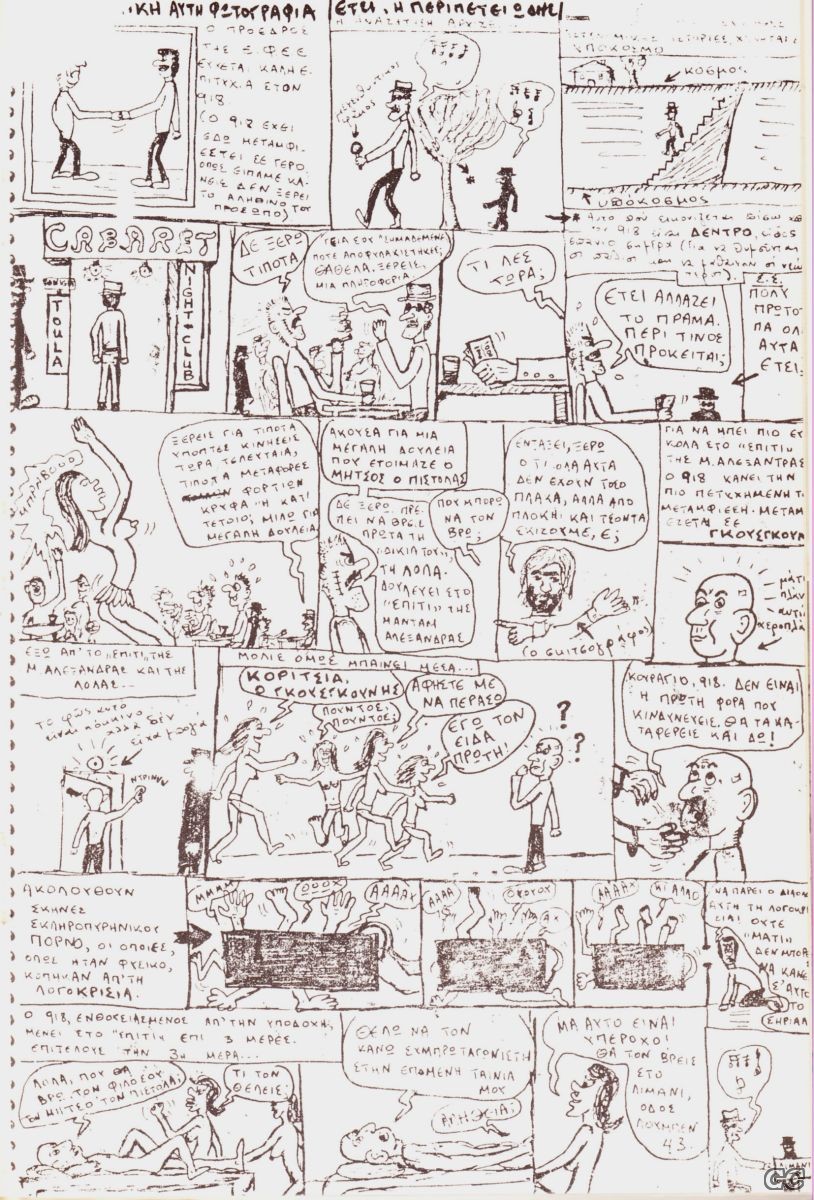 ΙΚΗ ΑΥΤΗ ΦΩΤΟΓΡΑΦΙΑ
ΕΤΣΙ, Η ΠΕΡΙΠΕΤΕΙΩΔΗΣ
Ο ΠΡΟΕΔΡΟΣ
ΤΗΣ Ε.ΦΕΕ
ΕΥΧΕΤΑΙ ΚΑΛΗ Ε-
ΠΙΤΥΧΙΑ ΣΤΟΝ
918.
(Ο 918 ΕΧΕΙ
ΕΔΩ ΜΕΤΑΜΦΙ-
ΕΣΤΕΙ ΣΕ ΓΕΡΟ.
ΟΠΩΣ ΕΙΠΑΜΕ ΚΑ-
ΝΕΙΣ ΔΕΝ ΞΕΡΕΙ
ΤΟ ΑΛΗΘΙΝΟ ΤΟΥ
ΠΡΟΣΩΠΟ)
Η ΑΝΑΖΗΤΗΣΗ ΑΡΧΙΖΕΙ
ΥΠΟΚΟΣΜΟ
ΚΟΣΜΟΣ
ΥΠΟΚΟΣΜΟΣ
ΔΕΝΤΡΟ
CABARET
TOULA
NIGHT-CLUB
ΔΕ ΞΕΡΩ
ΤΙΠΟΤΑ
ΓΕΙΑ ΣΟΥ ΣΗΜΑΔΕΜΕΝΕ
ΠΟΤΕ ΑΠΟΦΥΛΑΚΙΣΤΗΚΕΣ;
ΘΑΘΕΛΑ ΞΕΡΕΙΣ
ΜΙΑ ΠΛΗΡΟΦΟΡΙΑ
ΤΙ ΛΕΣ
ΤΩΡΑ;
ΕΤΣΙ ΑΛΛΑΖΕΙ
ΤΟ ΠΡΑΜΑ.
ΠΕΡΙ ΤΙΝΟΣ
ΠΡΟΚΕΙΤΑΙ;
Σ.Σ.
ΠΟΛΥ
ΠΡΩΤΟ
ΠΑ ΟΛ
ΑΥΤΑ
ΕΤΣΙ;
ΞΕΡΕΙΣ ΓΙΑ ΤΙΠΟΤΑ
ΥΠΟΠΤΕΣ ΚΙΝΗΣΕΙΣ
ΤΩΡΑ ΤΕΛΕΥΤΑΙΑ;
ΤΙΠΟΤΑ ΜΕΤΑΦΟΡΕΣ
ΦΟΡΤΙΩΝ
ΚΡΥΦΑ Ή ΚΑΤΙ
ΤΕΤΟΙΟ; ΜΙΛΩ ΓΙΑ
ΜΕΓΑΛΗ ΔΟΥΛΕΙΑ
ΑΚΟΥΣΑ ΓΙΑ ΜΙΑ
ΜΕΓΑΛΗ ΔΟΥΛΕΙΑ
ΠΟΥ ΕΤΟΙΜΑΖΕ Ο
ΜΗΤΣΟΣ Ο ΠΙΣΤΟΛΑΣ
ΔΕ ΞΕΡΩ. ΠΡΕ-
ΠΕΙ ΝΑ ΒΡΕΙΣ
ΠΡΩΤΑ ΤΗ
„ΔΙΚΙΑ ΤΟΥ",
ΤΗ ΛΟΛΑ.
ΔΟΥΛΕΥΕΙ ΣΤΟ
„ΣΠΙΤΙ" ΤΗΣ
ΜΑΝΤΑΜ
ΑΛΕΞΑΝΔΡΑΣ
ΠΟΥ ΜΠΟΡΩ
ΝΑ ΤΟΝ
ΒΡΩ;
ΕΝΤΑΞΕΙ, ΞΕΡΩ
Ο,ΤΙ ΟΛΑ ΑΥΤΑ
ΔΕΝ ΕΧΟΥΝ ΤΟΣΟ
ΠΛΑΚΑ, ΑΛΛΑ ΑΠΟ
ΠΛΟΚΗ ΚΑΙ ΤΣΟΝΤΑ
ΣΚΙΖΟΥΜΕ, Ε;
(Ο ΣΚΙΤΣΟΓΡΑΦΟΣ)
ΓΙΑ ΝΑ ΜΠΕΙ ΠΙΟ ΕΥ
ΚΟΛΑ ΣΤΟ „ΣΠΙΤΙ"
ΤΗΣ Μ.ΑΛΕΞΑΝΤΡΑΣ
Ο 918 ΚΑΝΕΙ ΤΗΝ
ΠΙΟ ΠΕΤΥΧΗΜΕΝΗ Τ
ΜΕΤΑΜΦΙΕΣΗ. ΜΕΤΑΜ
ΦΙΕΖΕΤΑΙ ΣΕ
ΓΚΟΥΣΓΚΟΥΝ
ΕΞΩ ΑΠ'ΤΟ „ΣΠΙΤΙ" ΤΗΣ
Μ.ΑΛΕΞΑΝΔΡΑΣ ΚΑΙ ΤΗΣ
ΛΟΛΑΣ...
ΤΟ ΦΩΣ ΑΥΤΟ
ΕΙΝΑΙ ΚΟΚΚΙΝΟ
ΑΛΛΑ ΔΕΝ
ΕΙΧΑ ΜΠΟΓΙΑ
ΝΤΡΙΝΝΝ
ΜΟΛΙΣ ΟΜΩΣ ΜΠΑΙΝΕΙ ΜΕΣΑ...
ΚΟΡΙΤΣΙΑ,
Ο ΓΚΟΥΣΓΚΟΥΝΗΣ
ΠΟΥΝΤΟΣ,
ΠΟΥΝΤΟΣ;
ΑΦΗΣΤΕ ΜΕ
ΝΑ ΠΕΡΑΣΩ
ΕΓΩ ΤΟΝ
ΕΙΔΑ
ΠΡΩΤΗ!
? ?
ΚΟΥΡΑΓΙΟ, 918. ΔΕΝ ΕΙΝΑΙ
Η ΠΡΩΤΗ ΦΟΡΑ ΠΟΥ
ΚΙΝΔΥΝΕΥΕΙΣ, ΘΑ ΤΑ ΚΑ-
ΤΑΦΕΡΕΙΣ ΚΑΙ ΔΩ!
ΑΚΟΛΟΥΘΟΥΝ
ΣΚΗΝΕΣ
ΣΚΛΗΡΟΠΥΡΗΝΙΚΟΥ
ΠΟΡΝΟ, ΟΙ ΟΠΟΙΕΣ,
ΟΠΩΣ ΗΤΑΝ ΦΥΣΙΚΟ,
ΚΟΠΗΚΑΝ ΑΠ'ΤΗ
ΛΟΓΟΚΡΙΣΙΑ.
ΜΜΜΜ
ΟΟΟΧ
ΑΑΑΑΧ
ΑΑΑΑ
ΟΧΟΥΟΥ
ΑΧ
ΑΑΑΑΧ
ΚΙ ΑΛΛΟ
ΝΑ ΠΑΡΕΙ Ο ΔΙΑΟΛ
ΑΥΤΗ ΤΗ ΛΟΓΟΚΡΙ
ΣΙΑ! ΟΥΤΕ
„ΜΑΤΙ"
ΔΕΝ ΜΠΟΡΕ
ΝΑ ΚΑΝΕΙ
Σ'ΑΥΤΟ
ΤΟ
ΣΗΡΙΑΛ
Ο 918, ΕΝΘΟΥΣΙΑΣΜΕΝΟΣ ΑΠ'ΤΗΝ ΥΠΟΔΟΧΗ,
ΜΕΝΕΙ ΣΤΟ "ΣΠΙΤΙ" ΕΠΙ 3 ΜΕΡΕΣ.
ΕΠΙΤΕΛΟΥΣ ΤΗΝ 3η ΜΕΡΑ...
ΛΟΛΑ, ΠΟΥ ΘΑ
ΒΡΩ ΤΟΝ ΦΙΛΟ ΣΟΥ
ΤΟΝ ΜΗΤΣΟ ΤΟΝ ΠΙΣΤΟΛΑ;
ΤΙ ΤΟΝ
ΘΕΛΕΙΣ;
ΘΕΛΩ ΝΑ ΤΟΝ
ΚΑΝΩ ΣΥΜΠΡΩΤΑΓΩΝΙΣΤΗ
ΣΤΗΝ ΕΠΟΜΕΝΗ ΤΑΙΝΙΑ
ΜΟΥ
ΑΛΗΘΕΙΑ;
ΜΑ ΑΥΤΟ ΕΙΝΑΙ
ΥΠΕΡΟΧΟ!
ΘΑ ΤΟΝ ΒΡΕΙΣ
ΣΤΟ
ΛΙΜΑΝΙ,
ΟΔΟΣ
ΛΟΥΜΠΕΝ
43.
GC